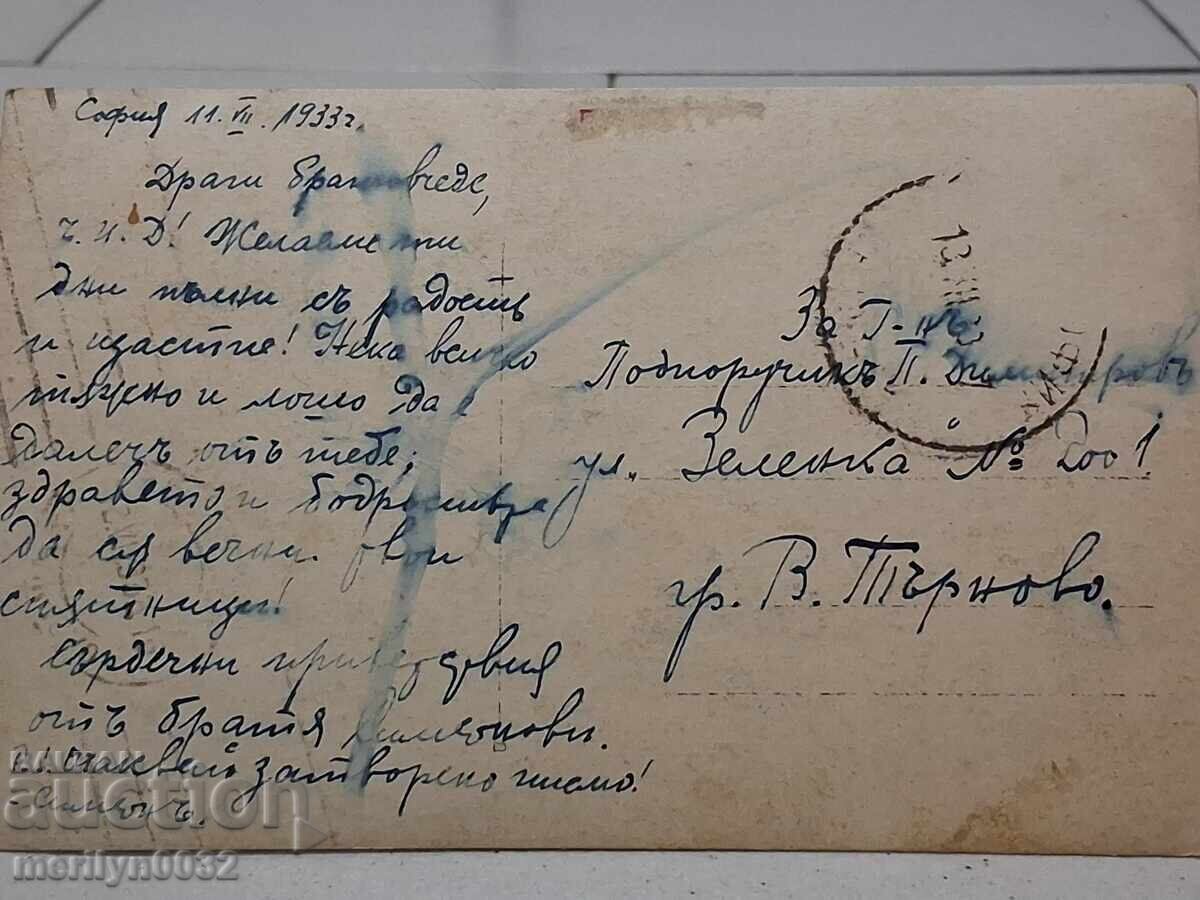 София 11. VII. 1933 г.
Драги братовчеде,
Ч. И. Д! Желаеме ти
дни пълни съ радость
и щастие! Нека всичко
тѫжно и лошо да е
далечъ отъ тебе;
здравето и бодростьта
да сѫ вечни твои
спѫтници!
Сърдечни приветствия
отъ братя Симеонови.
Очаквай затворено писмо!
Симеонъ.
За Г-нъ
Подпоручикъ П. Димитровъ
ул. Зеленка № 2001
гр. В. Търново.
БАЛКАН
auction
merilyn0032